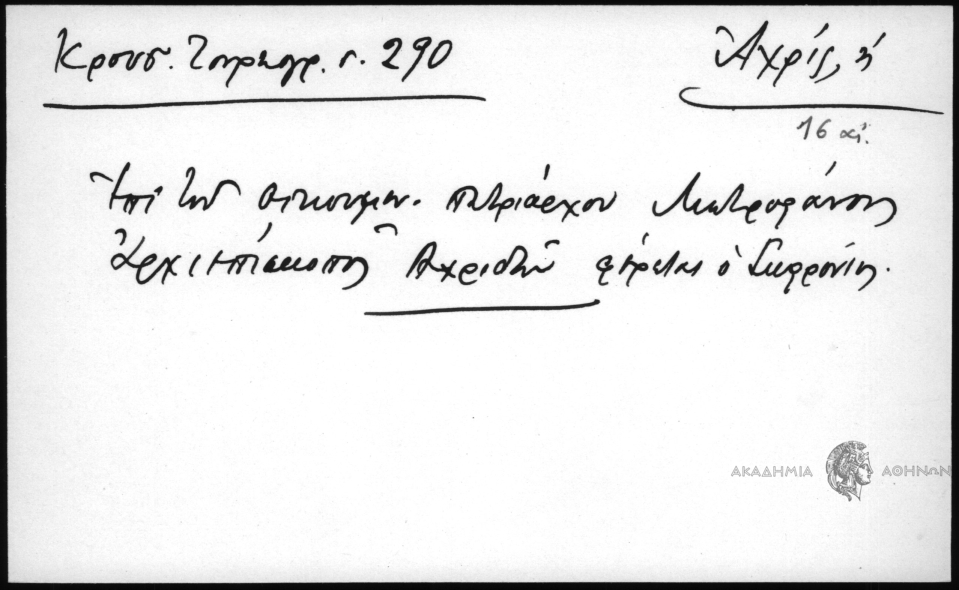 Κρουσ. Τουρκογρ. σ. 290
Ἀχρίς, ἡ
16 αἰ.
Ἐπὶ τοῦ οἰκουμεν. πατριάρχου Μητροφάνους
Ἀρχιεπίσκοπος Ἀχριδῶν φέρεται ὁ Σωφρόνιος.
ΑΚΑΔΗΜΙΑ ΑΘΗΝΩΝ